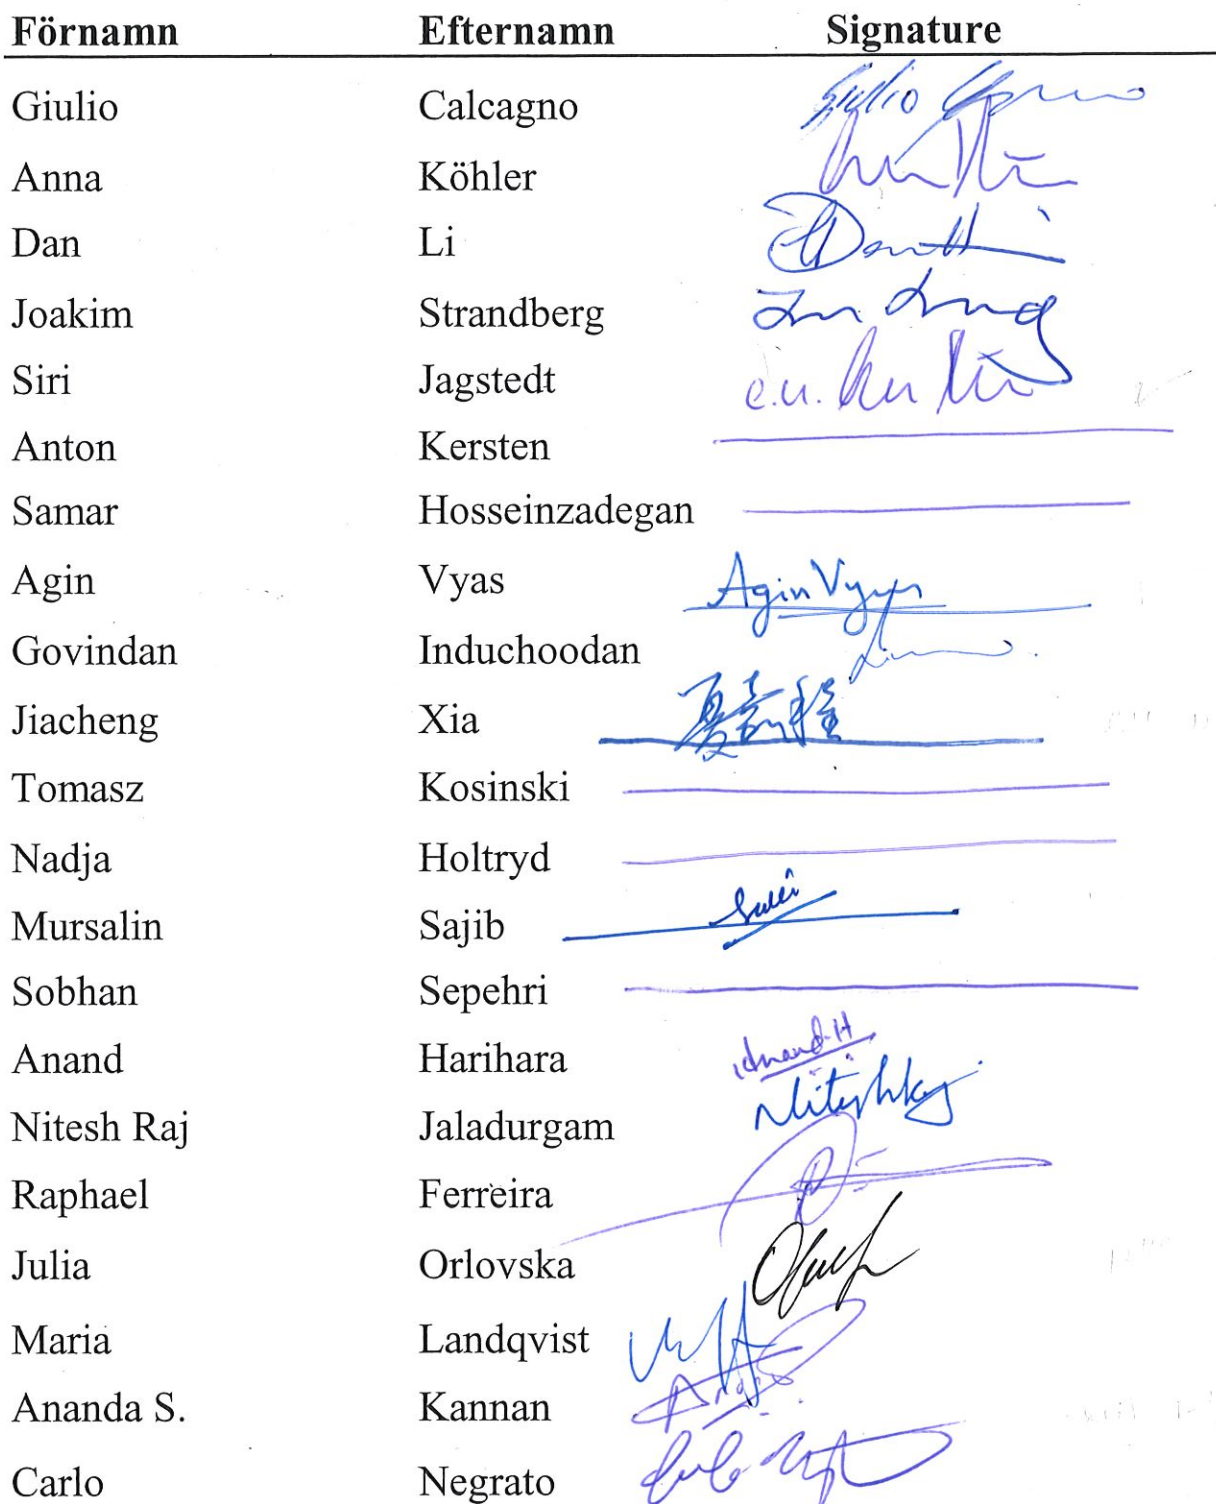 Förnamn Efternamn Signature
Giulio Calcagno Giulio
Anna Köhler
Dan Li
Joakim Strandberg
Siri Jagstedt e.u.
Anton Kersten
Samar Hosseinzadegan
Agin Vyas Agin Vyas
Govindan Induchoodan
Jiacheng Xia 夏嘉程
Tomasz Kosinski
Nadja Holtryd
Mursalin Sajib
Sobhan Sepehri
Anand Harihara Anand.H
Nitesh Raj Jaladurgam
Raphael Ferreira
Julia Orlovska
Maria Landqvist
Ananda S. Kannan
Carlo Negrato